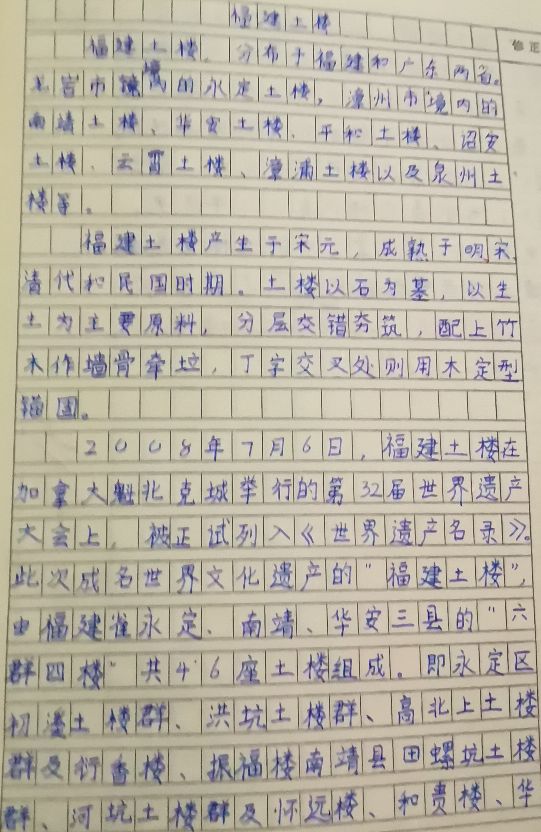 福建土楼
修正
福建土楼，分布于福建和广东两省。
龙岩市境内的永定土楼，漳州市境内的
南靖土楼、华安土楼、平和土楼、诏安
土楼、云霄土楼、漳浦土楼以及泉州土
楼等。
福建土楼产生于宋元，成熟于明宋
清代和民国时期。土楼以石为基，以生
土为主要原料，分层交错夯筑，配上竹
木作墙骨牵拉，丁字交叉处则用木定型
锚固。
2008年7月6日，福建土楼在
加拿大魁北克城举行的第32届世界遗产
大会上，被正试列入《世界遗产名录》。
此次成名世界文化遗产的"福建土楼"，
由福建省永定、南靖、华安三县的"六
群四楼"共46座土楼组成。即永定区
初溪土楼群、洪坑土楼群、高北上土楼
群及衍香楼、振福楼南靖县田螺坑土楼
群、河坑土楼群及怀远楼、和贵楼、华